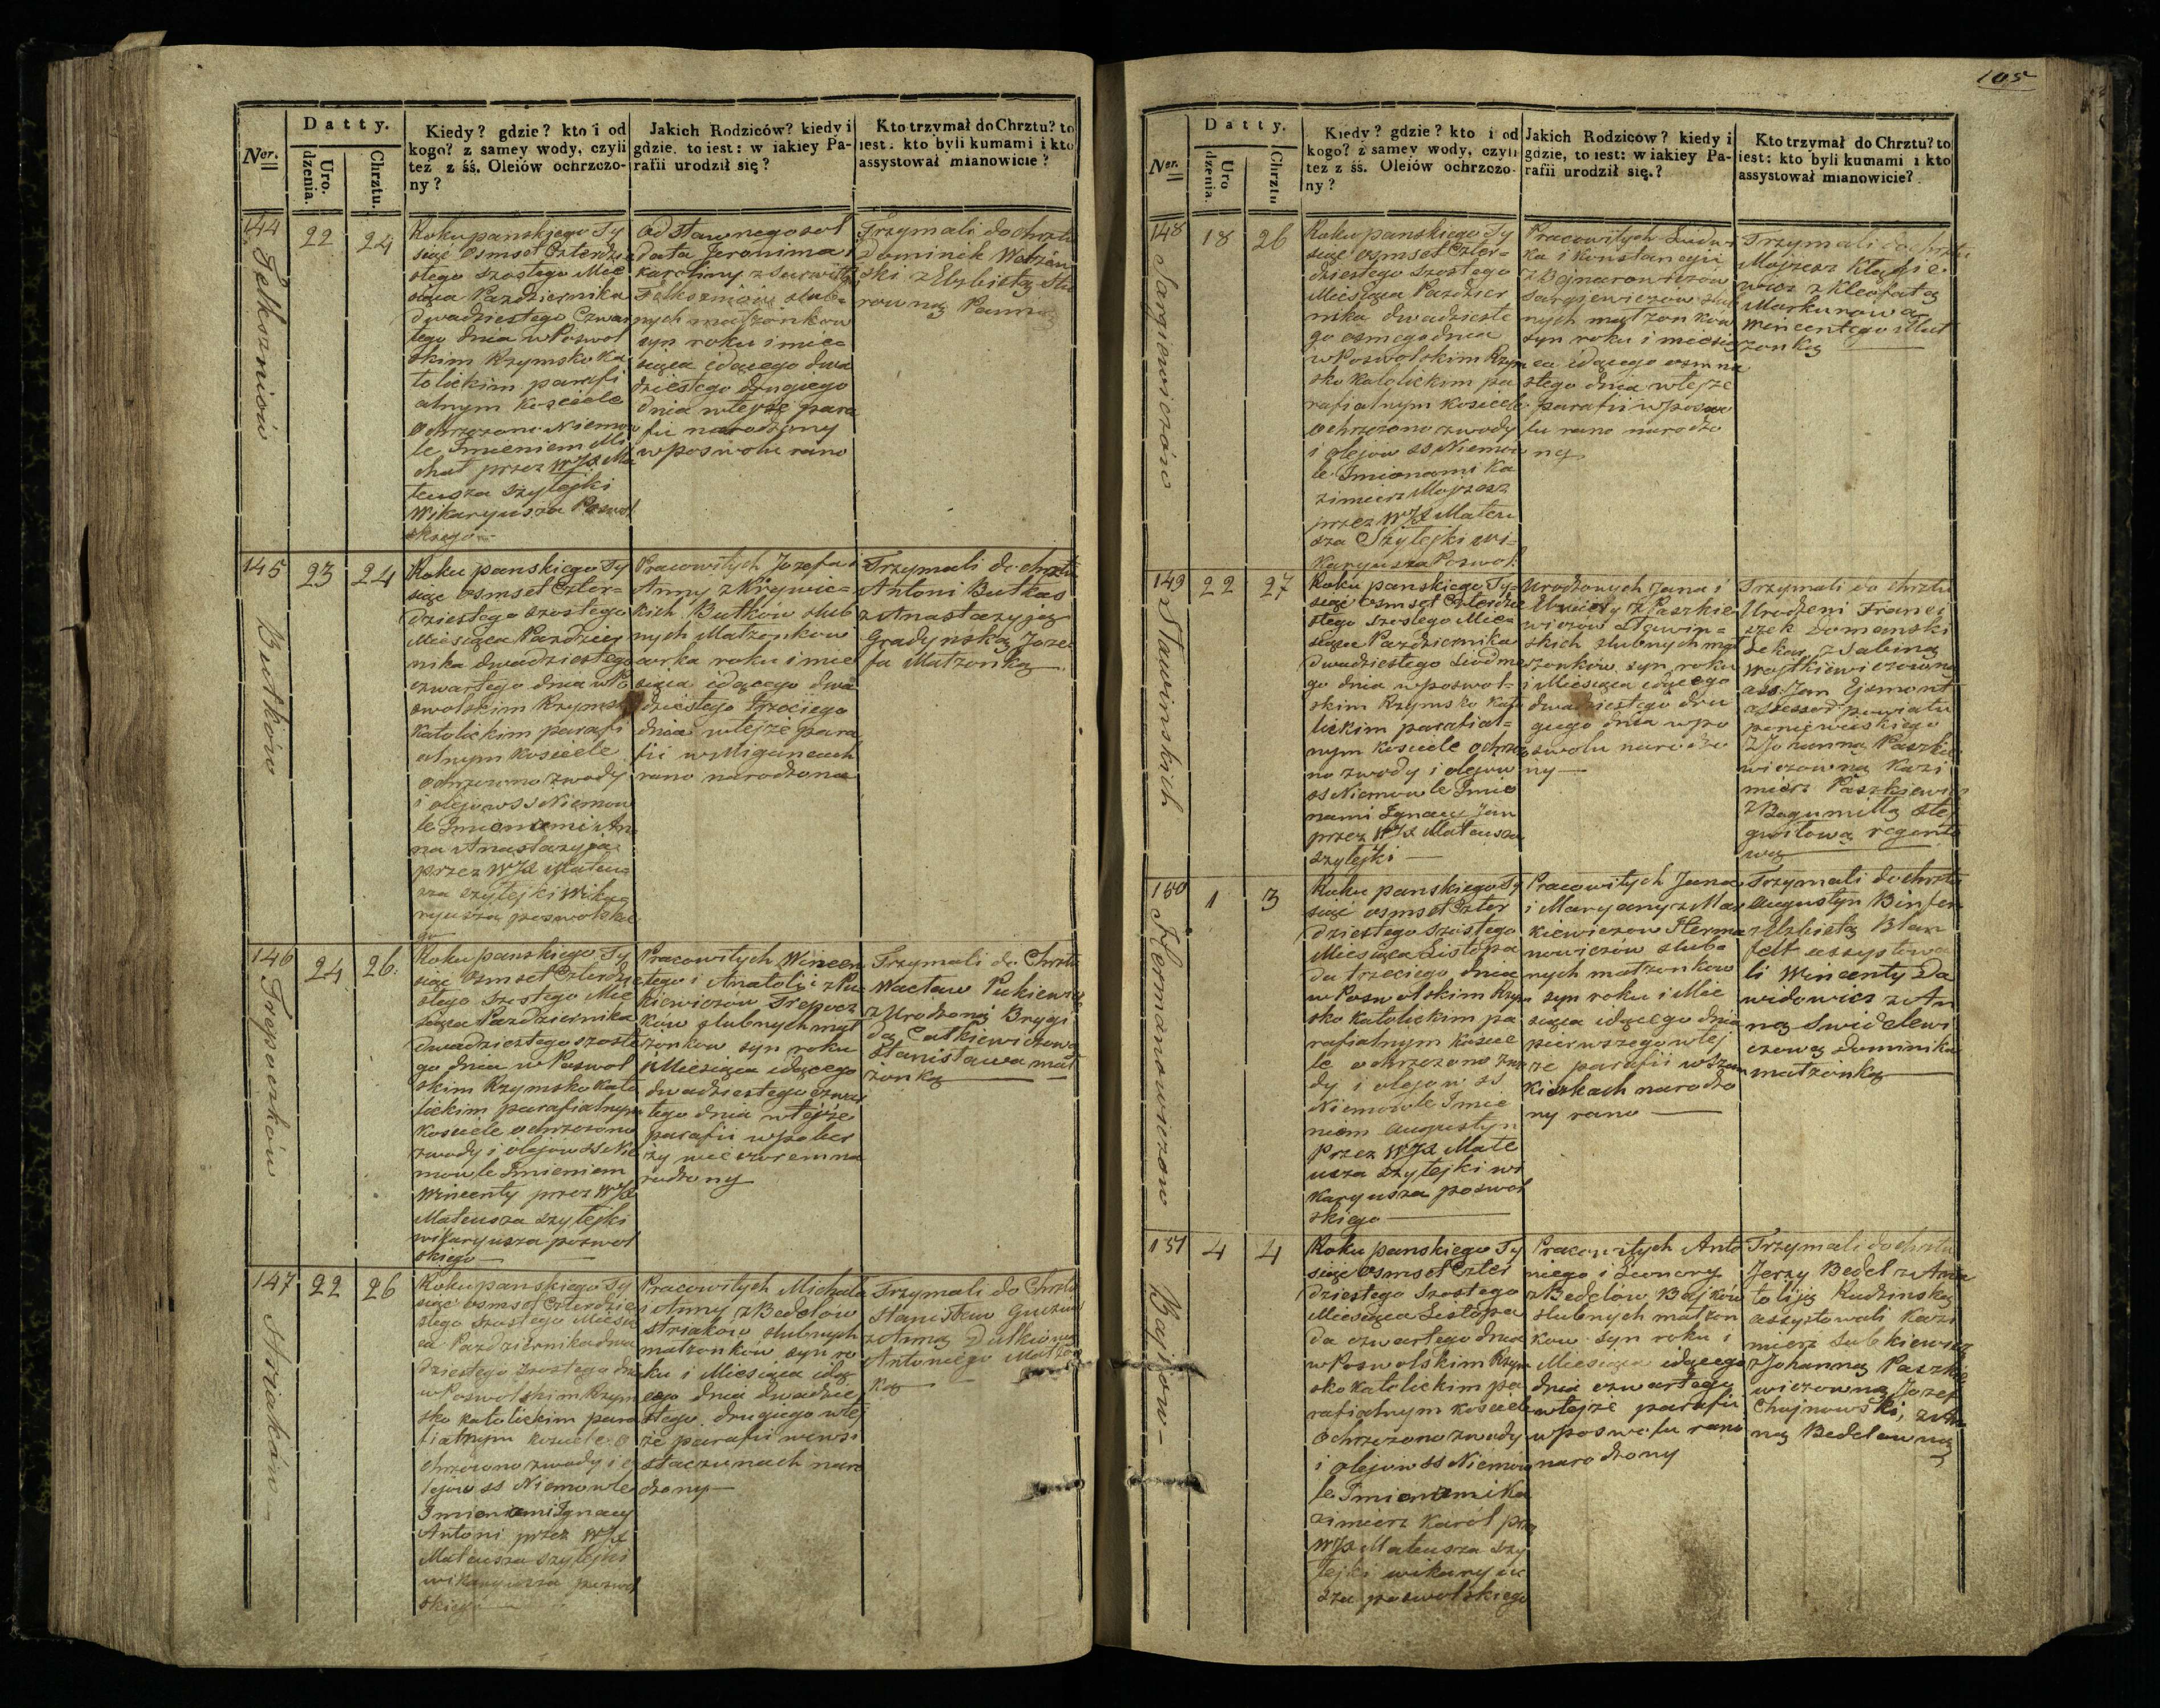 105
D a t t y.
Ner.
Uro.
dzenia.
Chrztu.
Kiedy? gdzie? kto i od
kogo? z samey wody, czyli
też z śś. Oleiów ochrzczo-
ny?
Jakich Rodziców? kiedy i
gdzie, to iest: w iakiey Pa-
rafii urodził się?
Kto trzymał do Chrztu? to
iest: kto byli kumami i kto
assystował mianowicie?
144
22
24
Roku panskiego Ty
siąc Osmset Czterdzie
stego szostego Mie
siąca Pazdziernika
dwadziestego Czwar
tego dnia w Poswol
skim Rzymsko Ka
tolickim parafi
alnym Kosciele
Ochrzczono Niemow
le Imieniem Mi
chał przez WJX Ma
teusza Szylejki
Wikaryusza Poswol
skiego
Od Stawnego soł
data Jeronima i
Karoliny z
slub-
nych małżonkow
syn roku i mie-
siąca idącego dwa
dziestego drugiego
dnia w tejże para
fii narodzony
w poswolu rano
Trzymali do chrztu
Dominik
ski z Elzbietą
rowną Panną
145
Butków
23
24
Roku panskiego Ty
siąc Osmset Czter-
dziestego szostego
Miesiąca Pazdzier
nika dwadziestego
czwartego dnia w Po
swolskim Rzymsko
Katolickim parafi
alnym Kosciele
Ochrzczono z wody
i olejow SS Niemow
le Imionami An
na Anastazyja
przez WJX Mateu-
sza Szylejki Wika
ryusza poswolskie
go
Pracowitych Jozefa i
Anny z Krywic-
kich Butków slub
nych Małzonkow
corka roku i mie
siąca idącego dwa
dziestego trzeciego
dnia w tejże para
fii w Miguncach
rano narodzona
Trzymali do chrztu
Antoni Butkas
z Anastazyją
Gradynską Joze-
fa Małzonką
146
24
26
Roku panskiego Ty
siąc Osmset Czterdzie
stego szostego Mie
siąca Pazdziernika
dwadziestego szoste
go dnia w Poswol
skim Rzymsko Kato
lickim parafialnym
Kosciele ochrzczono
z wody i olejow SS Nie
mowle Imieniem
Wincenty przez WJX
Mateusza Szylejki
wikaryusza poswol
skiego
Pracowitych Wincen
tego i Anatolii z Pu
kiewiczow
ków slubnych mał
żonkow syn roku
i Miesiąca idącego
dwadziestego czwar
tego dnia w tejże
parafii
wieczorem na
rodzony
Trzymali do Chrztu
Wacław Pukiewicz
z Urodzoną Brygi
dą
Stanisława mał
żonką
147
22
26
Roku panskiego Ty
siąc osmset Czterdzie
stego szostego Miesią
ca Pazdziernika dwa
dziestego szostego dnia
w Poswolskim Rzym
sko katolickim para
fialnym kosciele o
chrzczono z wody i o
lejow SS Niemowle
Imionami Ignacy
Antoni przez WJX
Mateusza Szylejki
wikaryusza poswol
skiego
Pracowitych Michała
i Anny z Bedelow
Striakow slubnych
małzonkow syn ro
ku i Miesiąca idą
cego dnia dwadzie
stego drugiego w tej
że parafii w wsi
staczunach naro
dzony
Trzymali do Chrztu
Stanisław
z Anną
Antoniego Małżon
ką
D a t t y.
Ner.
Uro
dzenia.
Chrztu
Kiedy? gdzie? kto i od
kogo? z samey wody, czyli
też z śś. Oleiów ochrzczo-
ny?
Jakich Rodziców? kiedy i
gdzie, to iest: w iakiey Pa-
rafii urodził się.?
Kto trzymał do Chrztu? to
iest: kto byli kumami i kto
assystował mianowicie?
148
Sargiewiczów
18
26
Roku panskiego Ty
siąc osmset Czter-
dziestego szostego
Miesiąca Pazdzier
nika dwadzieste
go osmego dnia
w Poswolskim Rzym
sko Katolickim pa
rafialnym Kosciele
Ochrzczono z wody
i olejow SS Niemow
le Imionami Ka
zimierz Mojzesz
przez WJX Mateu
sza Szylejki wi-
karyusza Poswol:
Pracowitych Ludwi
ka i Konstancyii
z Bojnarowiczów
Sargiewiczow slub
nych małzonków
syn roku i miesią
ca idącego osmna
stego dnia w tejze
parafii w poswo
lu rano narodzo
ny
Trzymali do chrztu
Mojzesz
wicz z Kleofatą
Markunową
Wincentego Mał
zonką
149
Sławinskich
22
27
Roku panskiego Ty-
siąc osmset Czterdzie
stego szostego Mie-
siąca Pazdziernika
dwadziestego siodme
go dnia w poswol-
skim Rzymsko Kato
lickim parafial-
nym kosciele ochrzczo
no z wody i olejow
SS Niemowle Imio
nami Ignacy Jan
przez WJX Mateusza
Szylejki
Urodzonych Jana i
z Paszkie
wiczów Sławin-
skich slubnych mał
żonków syn roku
i Miesiąca idącego
dwadziestego dru
giego dnia w po
swolu narodzo
ny
Trzymali do chrztu
Urodzeni Franci
szek Domanski
Lekar z Sabiną
Wojtkiewiczowną
ass: Jan Ejsmont
assessor powiatu
poniewieskiego
z Johanną Paszkie
wiczowną Kazi
mierz Paszkiewicz
z Bogumiłą
regento
wą
150
Hermanowiczow
1
3
Roku panskiego Ty
siąc osmset Czter
dziestego szostego
Miesiąca Listopa
da trzeciego dnia
w Poswolskim Rzym
sko katolickim pa
rafialnym Koscie
le ochrzczono z wo
dy i olejow SS
Niemowle Imie
niem Augustyn
Przez WJX Mate
usza Szylejki wi
karyusza poswol
skiego
Pracowitych Jana
i Maryany z Mac
kiewiczow Herma
nowiczów slub-
nych małzonkow
syn roku i Mie
siąca idącego dnia
pierwszego w tej
że parafii w
kiszkach narodzo
ny rano
Trzymali do chrztu
Augustyn
z Elzbietą Blan
felt assystowa
li Wincenty Da
widowicz z An
ną Swidelewi
czową Dominika
małzonką
151
Bajkow
4
4
Roku panskiego Ty
siąc Osmset Czter
dziestego Szostego
Miesiąca Listopa
da czwartego dnia
w Poswolskim Rzym
sko katolickim pa
rafialnym kosciele
Ochrzczono z wody
i olejow SS Niemow
le Imionami Ka
zimierz Karól prze
WJX Mateusza Szy
lejki wikaryu
sza poswolskiego
Pracowitych Anto
niego i Leonory
z Bedelów Bajków
slubnych małzon
kow syn roku i
Miesiąca idącego
dnia czwartego
w tejże parafii
w poswolu rano
narodzony
Trzymali do chrztu
Jerzy Bedel z Ana
toliją Rudzinską
assystowali Kazi
mierz Lutkiewicz
z Johanną Paszkie
wiczowną Jozef
Chojnowski, z An
ną Bedelowną